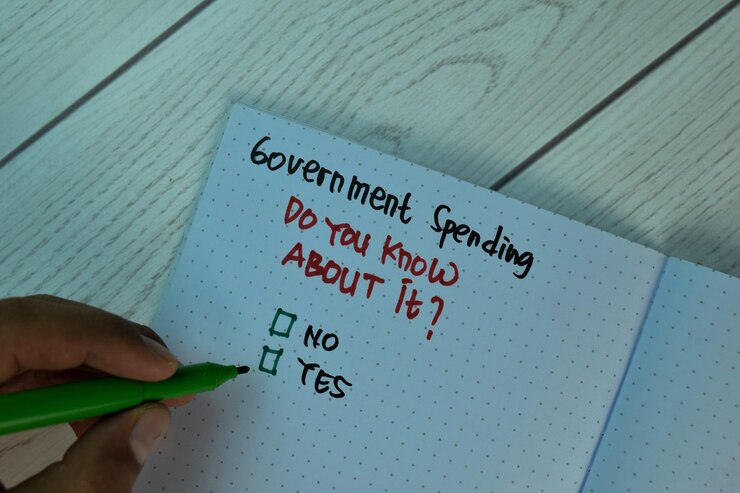 Government Spending
DO YOU KNOW
ABOUT it?
NO
YES